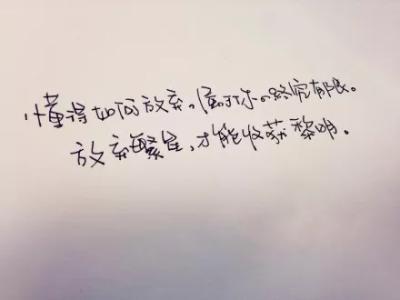 懂得如何放弃,属于你的终究有限。
放弃繁星,才能收获黎明。